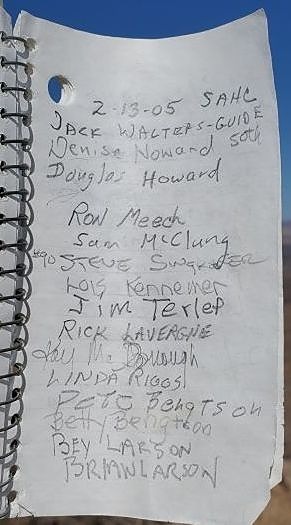 2-13-05 SAHC
JACK WALTERS-GUIDE
Denise Howard 50th
Douglas Howard
RON Meech
Sam McClung
#90 STEVE
Lois Kennemer
JIM TERLEP
RICK LAVERGNE
Jay McDonough
LINDA RIGGS
PETE Bengtson
Betty Bengtson
BEV LARSON
BRIAN LARSON